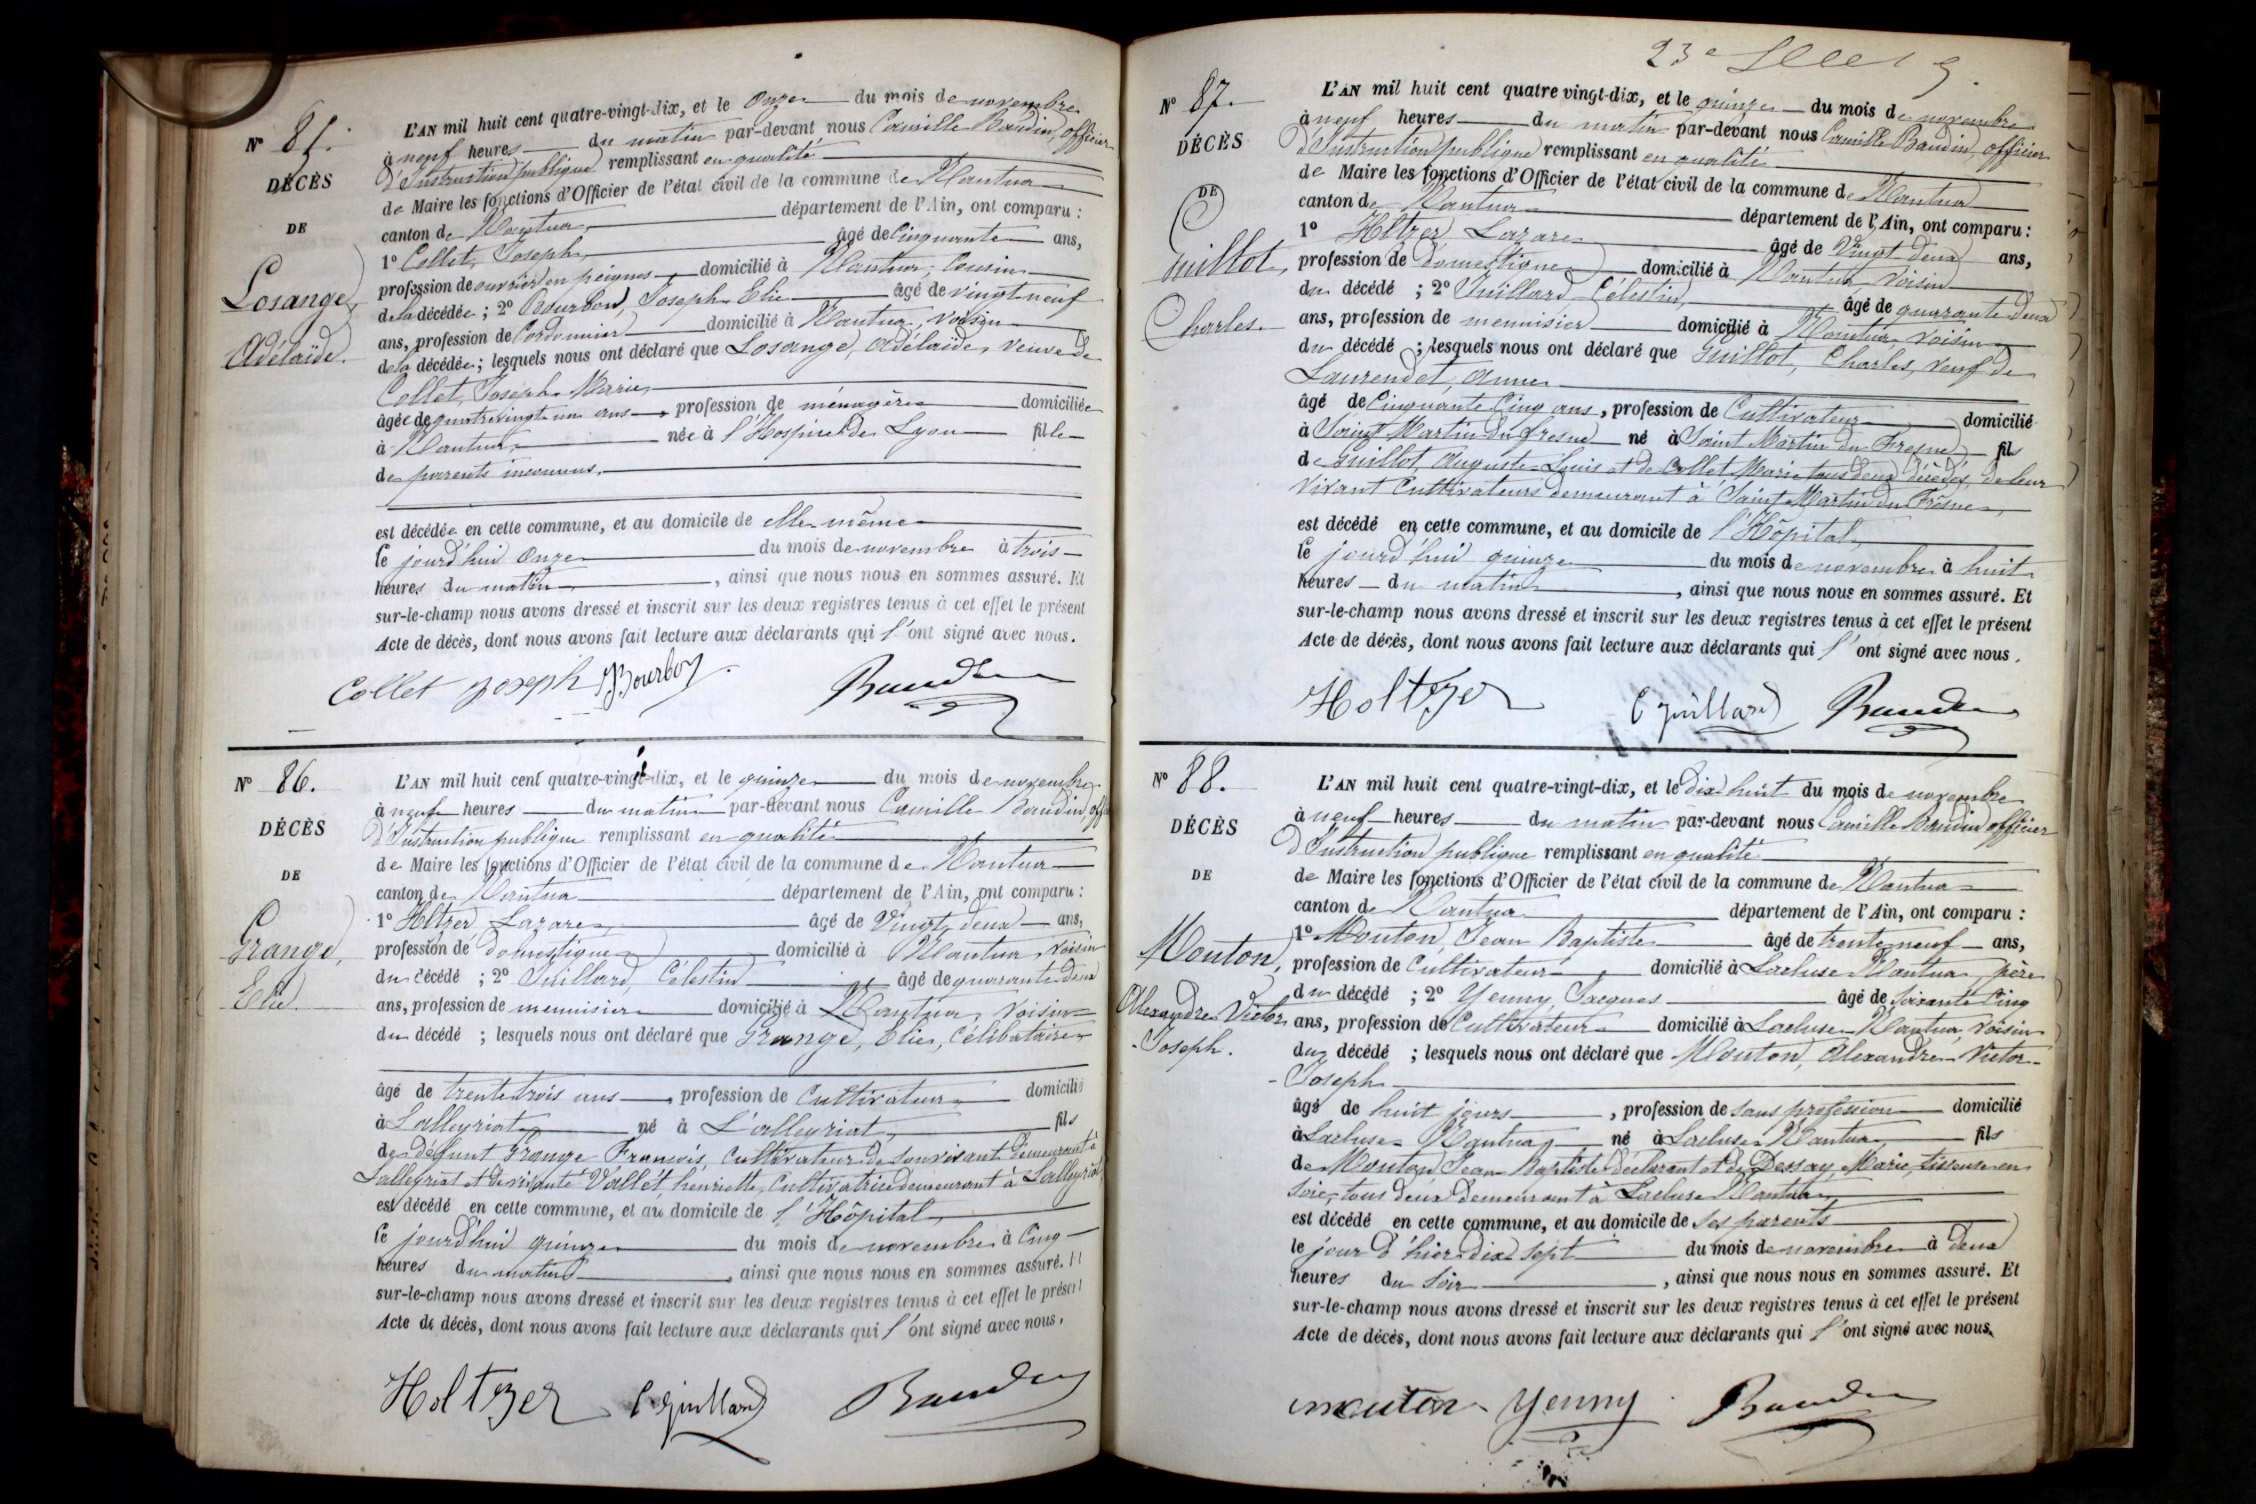 N° 85.
DÉCÈS
DE
Losange,
Adélaïde.
L'AN mil huit cent quatre-vingt-dix, et le onze du mois de novembre
à neuf heures du matin par-devant nous Camille Baudin, officier
d'Instruction publique remplissant en qualité
de Maire les fonctions d'Officier de l'état civil de la commune de Nantua
canton de Nantua département de l'Ain, ont comparu :
1° Collet, Joseph âgé de Cinquante ans,
profession de ouvrier en peignes domicilié à Nantua, Cousin
de la décédée ; 2° Bourbon, Joseph Elie âgé de vingt neuf
ans, profession de Cordonnier domicilié à Nantua, voisin
de la décédée ; lesquels nous ont déclaré que Losange, Adélaïde, veuve de
Collet, Joseph Marie,
âgée de quatre vingt un ans, profession de ménagère domiciliée
à Nantua, née à l'Hospice de Lyon fille
de parents inconnus,
est décédée en cette commune, et au domicile de elle-même
le jourd'hui onze du mois de novembre à trois
heures du matin, ainsi que nous nous en sommes assuré. Et
sur-le-champ nous avons dressé et inscrit sur les deux registres tenus à cet effet le présent
Acte de décès, dont nous avons fait lecture aux déclarants qui l'ont signé avec nous.
Collet Joseph Bourbon Baudin
N° 86.
DÉCÈS
DE
Grange,
Elie.
L'AN mil huit cent quatre-vingt-dix, et le quinze du mois de novembre
à neuf heures du matin par-devant nous Camille Baudin off
d'Instruction publique remplissant en qualité
de Maire les fonctions d'Officier de l'état civil de la commune de Nantua
canton de Nantua département de l'Ain, ont comparu :
1° Holtzer, Lazare, âgé de Vingt deux ans,
profession de domestique domicilié à Nantua, voisin
du décédé ; 2° Juillard, Célestin âgé de quarante deux
ans, profession de menuisier domicilié à Nantua, voisin
du décédé ; lesquels nous ont déclaré que Grange, Elie, Célibataire
âgé de trente trois ans, profession de Cultivateur domicilié
à Lalleyriat, né à Lalleyriat, fils
de défunt Grange François, cultivateur de son vivant demeurant à
Lalleyriat et de vivante Vallet, henriette, Cultivatrice demeurant à Lalleyriat,
est décédé en cette commune, et au domicile de l'Hôpital,
le jourd'hui quinze du mois de novembre à Cinq
heures du matin, ainsi que nous nous en sommes assuré. Et
sur-le-champ nous avons dressé et inscrit sur les deux registres tenus à cet effet le présent
Acte de décès, dont nous avons fait lecture aux déclarants qui l'ont signé avec nous.
Holtzer C Juillard Baudin
23e
N° 87.
DÉCÈS
DE
Guillot,
Charles.
L'AN mil huit cent quatre vingt-dix, et le quinze du mois de novembre
à neuf heures du matin par-devant nous Camille Baudin, officier
d'Instruction publique remplissant en qualité
de Maire les fonctions d'Officier de l'état civil de la commune de Nantua
canton de Nantua département de l'Ain, ont comparu :
1° Holtzer, Lazare âgé de Vingt deux ans,
profession de domestique domicilié à Nantua, voisin
du décédé ; 2° Juillard Célestin, âgé de quarante deux
ans, profession de menuisier domicilié à Nantua, voisin
du décédé ; lesquels nous ont déclaré que Guillot, Charles, veuf de
Laurendet, Anne
âgé de Cinquante Cinq ans, profession de Cultivateur domicilié
à Saint Martin du Fresne né à Saint Martin du Fresne, fils
de Guillot, Auguste Louis et de Collet Marie tous deux décédés, de leur
vivant Cultivateurs demeurant à Saint Martin du Frêsne,
est décédé en cette commune, et au domicile de l'Hôpital,
le jourd'hui quinze du mois de novembre à huit
heures du matin, ainsi que nous nous en sommes assuré. Et
sur-le-champ nous avons dressé et inscrit sur les deux registres tenus à cet effet le présent
Acte de décès, dont nous avons fait lecture aux déclarants qui l'ont signé avec nous.
Holtzer C Juillard Baudin
N° 88.
DÉCÈS
DE
Mouton,
Alexandre Victor
Joseph.
L'AN mil huit cent quatre-vingt-dix, et le dix huit du mois de novembre
à neuf heures du matin par-devant nous Camille Baudin officier
d'Instruction publique remplissant en qualité
de Maire les fonctions d'Officier de l'état civil de la commune de Nantua
canton de Nantua département de l'Ain, ont comparu :
1° Mouton, Jean Baptiste âgé de trente neuf ans,
profession de Cultivateur, domicilié à Lacluse Nantua, père
du décédé ; 2° Yenny, Jacques âgé de Soixante Cinq
ans, profession de Cultivateur domicilié à Lacluse Nantua, voisin
du décédé ; lesquels nous ont déclaré que Mouton, Alexandre Victor
Joseph
âgé de huit jours, profession de sans profession domicilié
à Lacluse Nantua, né à Lacluse Nantua, fils
de Mouton, Jean Baptiste déclarant et de Dessay, Marie, tisseuse en
soie, tous deux demeurant à Lacluse Nantua
est décédé en cette commune, et au domicile de ses parents
le jour d'hier dix sept du mois de novembre à deux
heures du soir, ainsi que nous nous en sommes assuré. Et
sur-le-champ nous avons dressé et inscrit sur les deux registres tenus à cet effet le présent
Acte de décès, dont nous avons fait lecture aux déclarants qui l'ont signé avec nous.
mouton Yenny Baudin